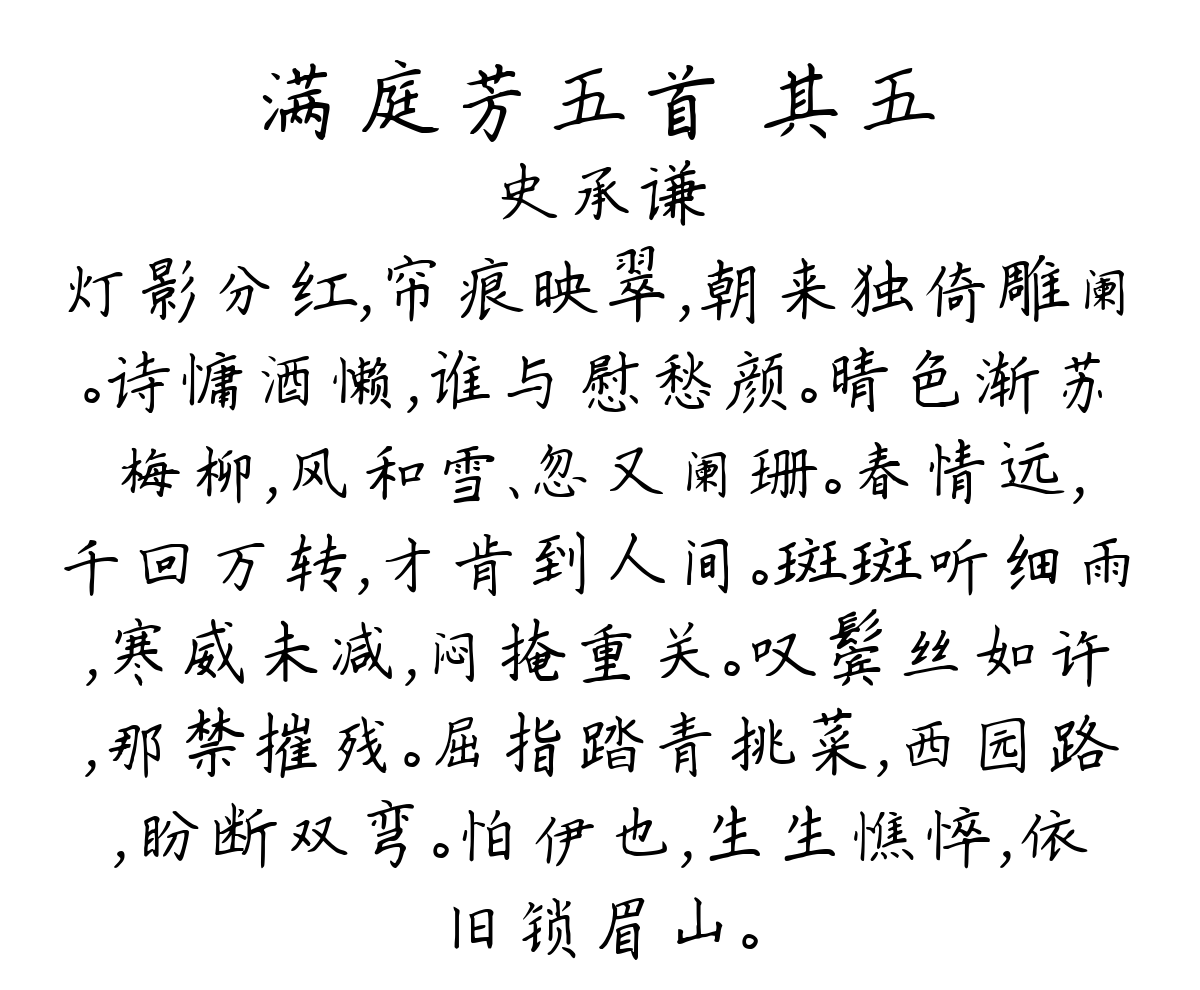 满庭芳五首 其五
史承谦
灯影分红,帘痕映翠,朝来独倚雕阑
。诗慵酒懒,谁与慰愁颜。晴色渐苏
梅柳,风和雪、忽又阑珊。春情远,
千回万转,才肯到人间。斑斑听细雨
,寒威未减,闷掩重关。叹鬓丝如许
,那禁摧残。屈指踏青挑菜,西园路
,盼断双弯。怕伊也,生生憔悴,依
旧锁眉山。